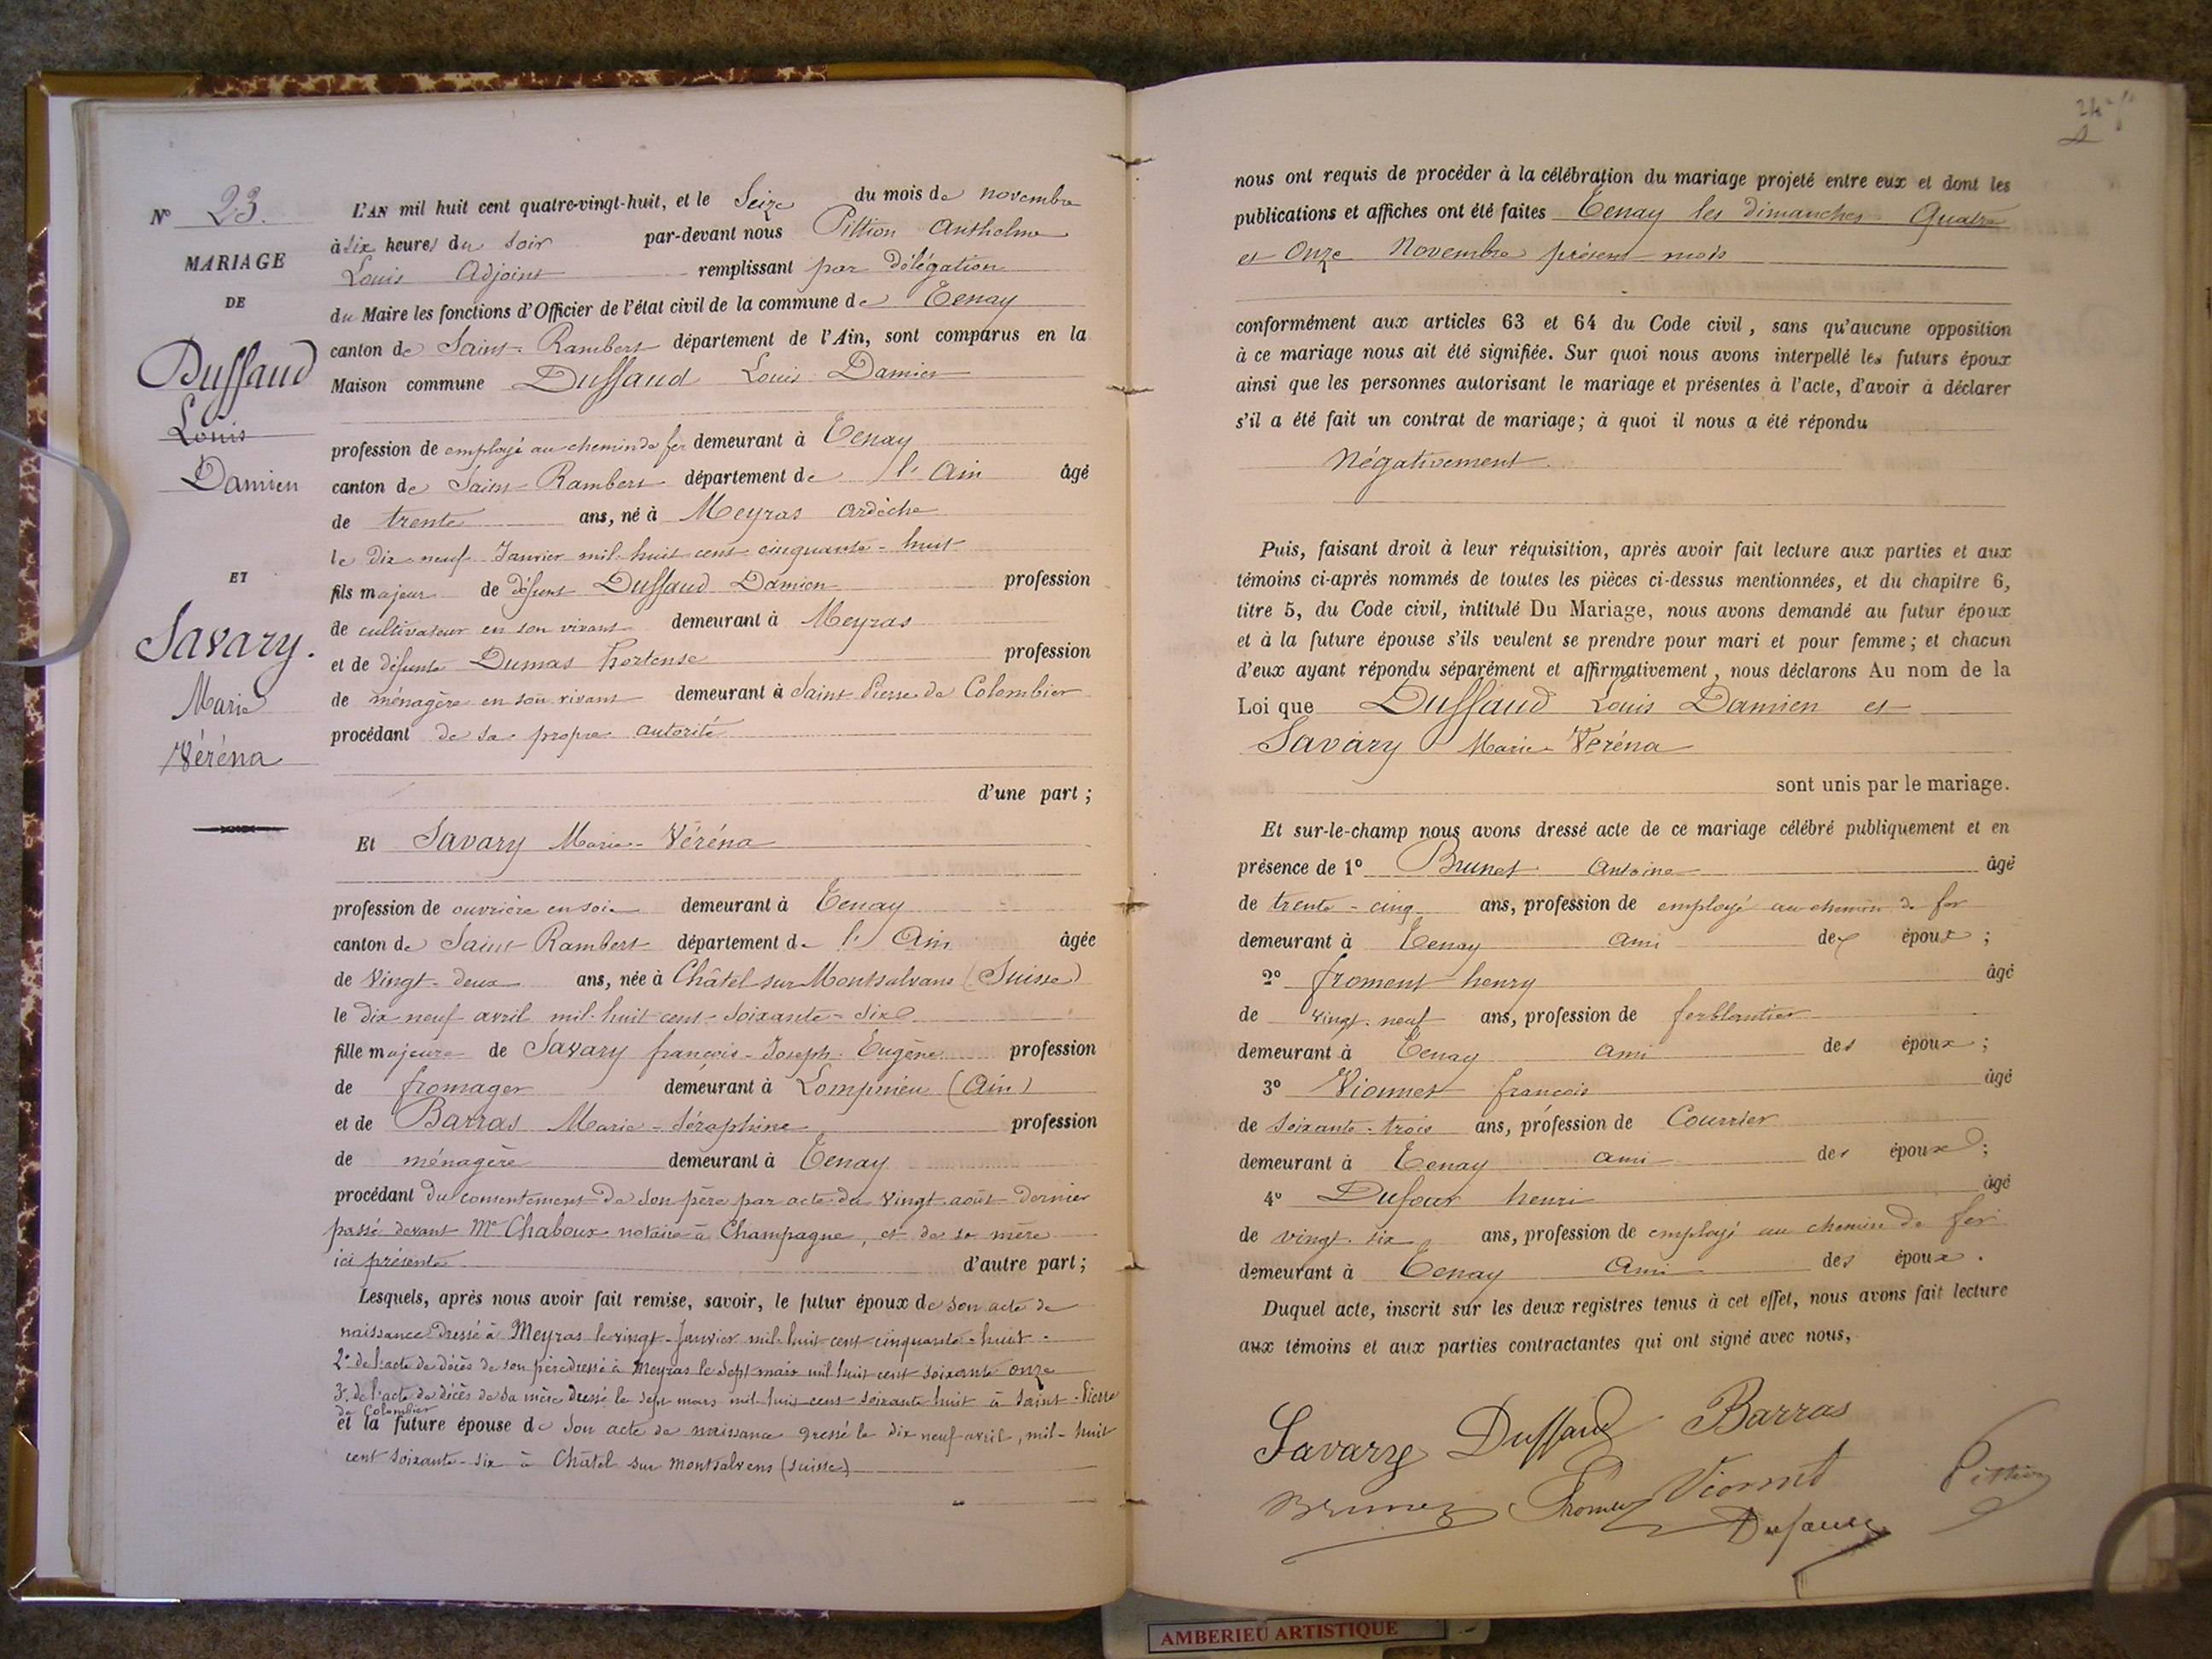 N° 23.
MARIAGE
DE
Duffaud
Louis
Damien
ET
Savary.
Marie
Véréna
L'AN mil huit cent quatre-vingt-huit, et le Seize du mois de novembre
à six heures du soir par-devant nous Pittion Anthelme
Louis Adjoint remplissant par délégation
du Maire les fonctions d'Officier de l'état civil de la commune de Tenay
canton de Saint-Rambert département de l'Ain, sont comparus en la
Maison commune Duffaud Louis Damien
profession de employé au chemin de fer demeurant à Tenay
canton de Saint-Rambert département de l'Ain âgé
de trente ans, né à Meyras Ardèche
le dix-neuf Janvier mil-huit cent cinquante-huit
fils majeur de défunt Duffaud Damien profession
de cultivateur en son vivant demeurant à Meyras
et de défunte Dumas hortense profession
de ménagère en son vivant demeurant à Saint Pierre de Colombier
procédant de sa propre autorité
d'une part ;
Et Savary Marie-Véréna
profession de ouvrière en soie demeurant à Tenay
canton de Saint Rambert département de l'Ain âgée
de Vingt-deux ans, née à Châtel sur Montsalvans (Suisse)
le dix-neuf avril mil-huit cent-soixante-six
fille majeure de Savary françois-Joseph-Eugène profession
de fromager demeurant à Lompnieu (Ain)
et de Barras Marie-Séraphine profession
de ménagère demeurant à Tenay
procédant du consentement de son père par acte du vingt août dernier
passé devant Me Chaboux notaire à Champagne, et de sa mère
ici présente d'autre part ;
Lesquels, après nous avoir fait remise, savoir, le futur époux de son acte de
naissance dressé à Meyras le vingt-Janvier mil-huit cent cinquante-huit-
2° de l'acte de décès de son père dressé à Meyras le sept mars mil huit cent soixante onze
3° de l'acte de décès de sa mère dressé le sept mars mil-huit cent-soixante huit à Saint-Pierre
de Colombier
et la future épouse de son acte de naissance dressé le dix neuf avril, mil-huit
cent soixante-six à Châtel sur Montsalvens (Suisse)
nous ont requis de procéder à la célébration du mariage projeté entre eux et dont les
publications et affiches ont été faites Tenay les dimanches Quatre
et Onze Novembre présent mois
conformément aux articles 63 et 64 du Code civil, sans qu'aucune opposition
à ce mariage nous ait été signifiée. Sur quoi nous avons interpellé les futurs époux
ainsi que les personnes autorisant le mariage et présentes à l'acte, d'avoir à déclarer
s'il a été fait un contrat de mariage; à quoi il nous a été répondu
Négativement
Puis, faisant droit à leur réquisition, après avoir fait lecture aux parties et aux
témoins ci-après nommés de toutes les pièces ci-dessus mentionnées, et du chapitre 6,
titre 5, du Code civil, intitulé Du Mariage, nous avons demandé au futur époux
et à la future épouse s'ils veulent se prendre pour mari et pour femme; et chacun
d'eux ayant répondu séparément et affirmativement, nous déclarons Au nom de la
Loi que Duffaud Louis Damien et
Savary Marie-Véréna
sont unis par le mariage.
Et sur-le-champ nous avons dressé acte de ce mariage célébré publiquement et en
présence de 1° Brunet Antoine âgé
de trente-cinq ans, profession de employé au chemin de fer
demeurant à Tenay ami des époux ;
2° froment henry âgé
de vingt-neuf ans, profession de ferblantier
demeurant à Tenay ami des époux ;
3° Vionnet françois âgé
de soixante-trois ans, profession de Courrier
demeurant à Tenay ami des époux ;
4° Dufour henri âgé
de vingt-six ans, profession de employé au chemin de fer
demeurant à Tenay Ami des époux.
Duquel acte, inscrit sur les deux registres tenus à cet effet, nous avons fait lecture
aux témoins et aux parties contractantes qui ont signé avec nous,
Savary Duffaud Barras
Brunet Froment Vionnet Pittion
Dufour
AMBERIEU ARTISTIQUE